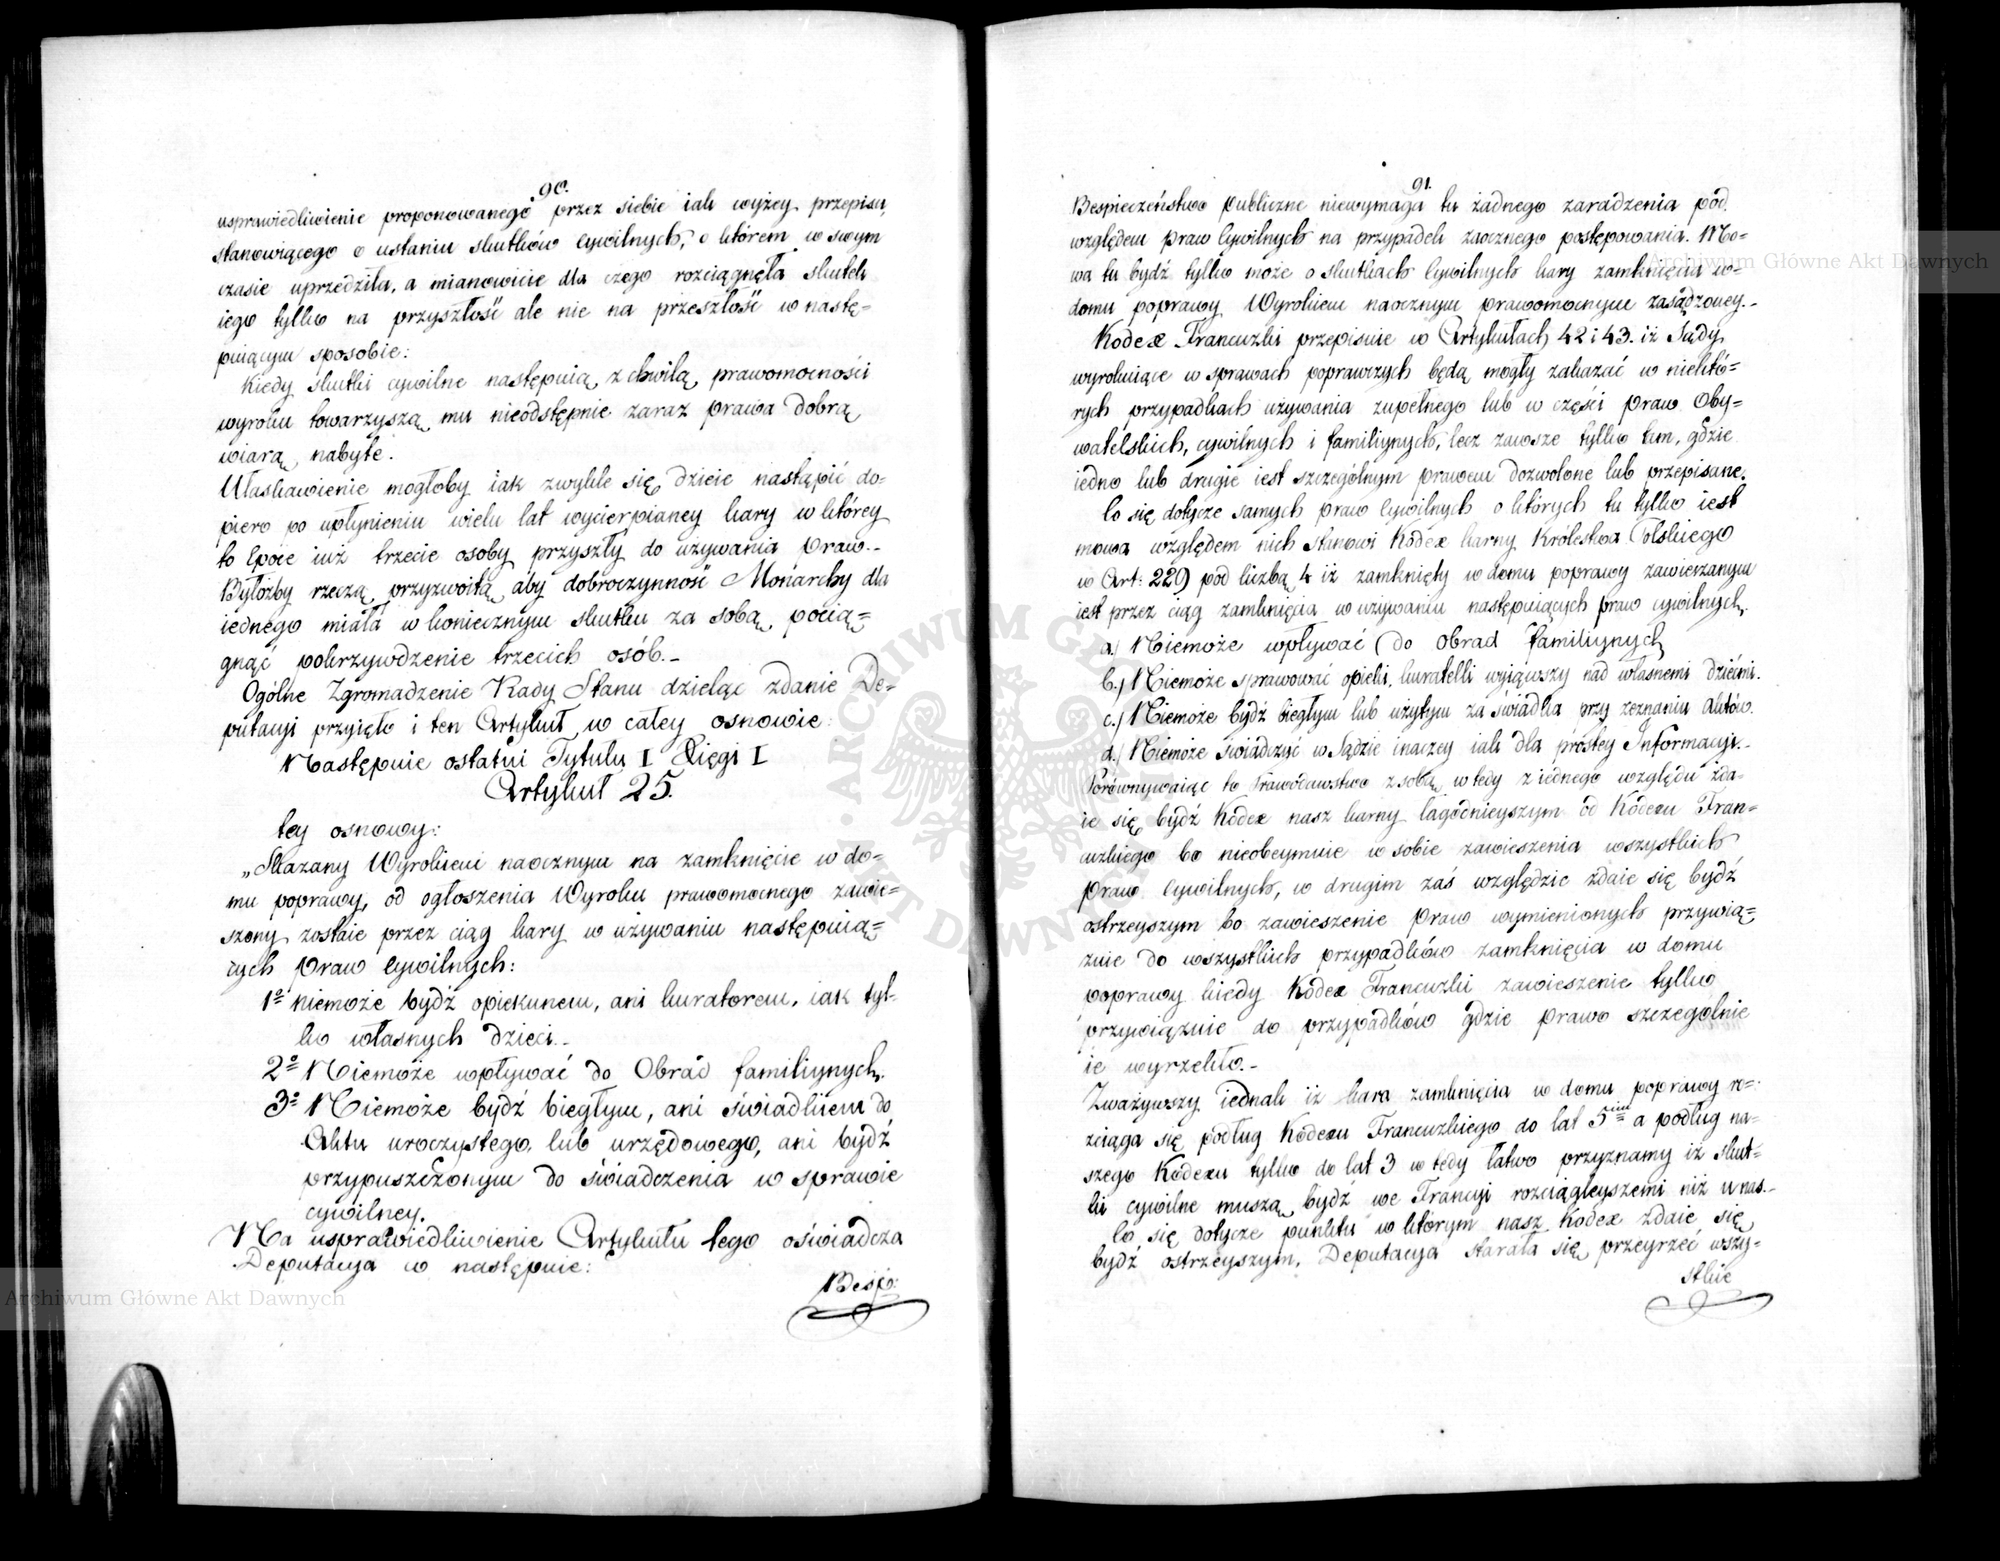 90.
usprawiedliwienie proponowanego przez siebie iak wyżey przepisu,
stanowiącego o ustaniu skutków cywilnych, o którem w swym
czasie uprzedziła, a mianowicie dla czego rozciągnęła skutek
iego tylko na przyszłość ale nie na przeszłość w nastę=
puiącym sposobie:
Kiedy skutki cywilne następuią z chwilą prawomocności
wyroku towarzyszą mu nieodstępnie zaraz prawa dobrą
wiarą nabyte.
Ułaskawienie mogłoby iak zwykle się dzieie nastąpić do=
piero po upłynieniu wielu lat wycierpianey kary w którey
to Epoce iuż trzecie osoby przyszły do używania Praw.-
Byłożby rzeczą przyzwoitą aby dobroczynność Monarchy dla
iednego miała w koniecznym skutku za sobą pocią=
gnąć pokrzywdzenie trzecich osób.-
Ogólne Zgromadzenie Rady Stanu dzieląc zdanie De=
putacyi przyięło i ten Artykuł w całey osnowie:
Następuie ostatni Tytułu I Xięgi I
Artykuł 25.
tey osnowy:
„Skazany Wyrokiem naocznym na zamknięcie w do=
mu poprawy, od ogłoszenia Wyroku prawomocnego zawie=
szony zostaie przez ciąg kary w używaniu następuią=
cych Praw Cywilnych:
1º niemoże bydź opiekunem, ani kuratorem, iak tyl=
ko własnych dzieci.-
2º Niemoże wpływać do Obrad familiynych.
3º Niemoże bydź biegłym, ani świadkiem do
Aktu uroczystego, lub urzędowego, ani bydź
przypuszczonym do świadczenia w sprawie
cywilney.
Na usprawiedliwienie Artykułu tego oświadcza
Deputacya co następuie:
Bespie:
91.
Bespieczeństwo publiczne niewymaga tu żadnego zaradzenia pod
względem praw Cywilnych na przypadek zaocznego postępowania. Mo=
wa tu bydź tylko może o skutkach Cywilnych kary zamknięcia w=
domu poprawy Wyrokiem naocznym prawomocnym zasądzoney.-
Kodex Francuzki przepisuie w Artykułach 42 i 43. iż Sądy
wyrokuiące w sprawach poprawczych będą mogły zakazać w niektó=
rych przypadkach używania zupełnego lub w części Praw Oby=
watelskich, cywilnych i familiynych, lecz zawsze tylko tam, gdzie
iedno lub drugie iest szczególnym prawem dozwolone lub przepisane.
Co się dotycze samych praw Cywilnych o których tu tylko iest
mowa względem nich stanowi Kodex karny Królestwa Polskiego
w Art: 229 pod liczbą 4 iż zamknięty w domu poprawy zawieszanym
iest przez ciąg zamknięcia w używaniu następuiących praw cywilnych.
a.) Niemoże wpływać do Obrad familiynych
b.) Niemoże sprawować opieki, kuratelli wyiąwszy nad własnemi dziećmi.
c.) Niemoże bydź biegłym lub użytym za świadka przy zeznaniu Aktów.
d.) Niemoże świadczyć w Sądzie inaczey iak dla prostey Informacyi.-
Porównywaiąc to Prawodawstwo z sobą, w tedy z iednego względu zda=
ie się bydź Kodex nasz karny łagodnieyszym od Kodexu Fran=
cuzkiego bo nieobeymuie w sobie zawieszenia wszystkich
Praw Cywilnych, w drugim zaś względzie zdaie się bydź
ostrzeyszym bo zawieszenie Praw wymienionych przywią=
zuie do wszystkich przypadków zamknięcia w domu
poprawy kiedy Kodex Francuzki zawieszenie tylko
przywiązuie do przypadków gdzie prawo szczególnie
ie wyrzekło.-
Zważywszy iednak iż kara zamknięcia w domu poprawy ro=
zciąga się podług Kodexu Francuzkiego do lat 5ciu a podług na=
szego Kodexu tylko do lat 3 w tedy łatwo przyznamy iż skut=
ki cywilne muszą bydź we Francyi rozciągleyszemi niż u nas.-
Co się dotycze punktu w którym nasz Kodex zdaie się
bydź ostrzeyszym, Deputacya starała się przeyrzeć wszy=
stkie
Archiwum Główne Akt Dawnych
Archiwum Główne Akt Dawnych
ARCHIWUM GŁÓWNE AKT DAWNYCH